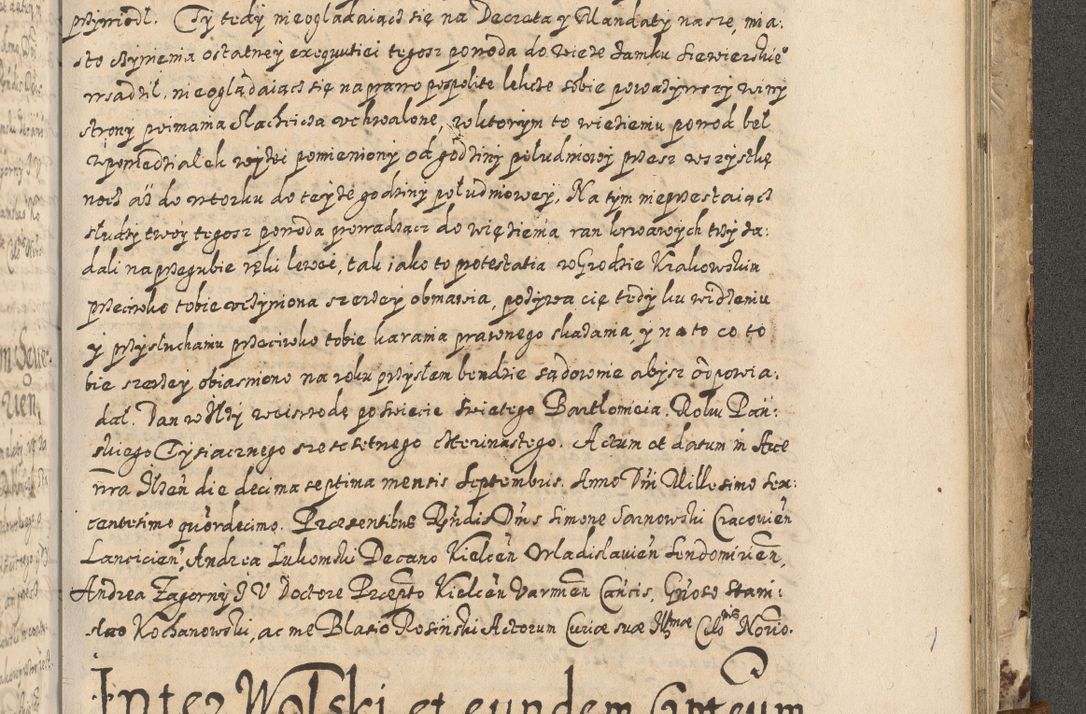 przywiodł. Ty tedy nieoglądaiącz się na Decreta y Mandaty nasze, mia:
sto czynienia ostatney exequutiei tegosz powoda do wieże Zamku Siewierskie°
wsadził, nieoglądaiącz się na prawo pospolite lekcze sobie poważywszy winy
strony poimania Slachcica vchwalone, w ktorym to więzieniu powod był
w poniedziałek wyżei pomieniony od godziny południowey przesz wszystkę
nocz aż do wtorku do teyże godziny południowey. Na tym nieprzestaiącz
słudzy twoy tegosz powoda prowadząc do więzienia ran krwawych trzy za:
dali na przegubie ręki lewei, tak iako to protestatia w Grodzie Krakowskim
przeciwko tobie vczyniona szerzey obmawia, pozywa cię tedy ku widzeniu
y przysłuchaniu przeciwko tobie karania prawnego skazania y na to co to
bie szerzey obiasniono na roku przyszłem bendzie sądownie abysz odpowia:
dał. Dan w Iłży we iswrodę po swięcie Swiętego Bartłomieia. Roku Pań:
skiego Tysiącznego szescsetnego czterinastego. Actum et datum in Arce
nra Ilzen die decima septima mensis Septembris. Anno Dni Millesimo sex:
centesimo quordecimo. Præsentibus Rndis Dnis Simone Sarnowski Cracovien
Lancicien, Andrea Lukomski Decano Kielcen Wladislavien Sendomirien,
Andrea Zagorny I V Doctore Præpto Kielcen Varmen Cancis, Gnoso Stani:
slao Kochanowski, ac me Blasio Rosinski Actorum Curiæ suæ Illmæ Celsnis Notrio.
Inter Wolski et eundem Capteum